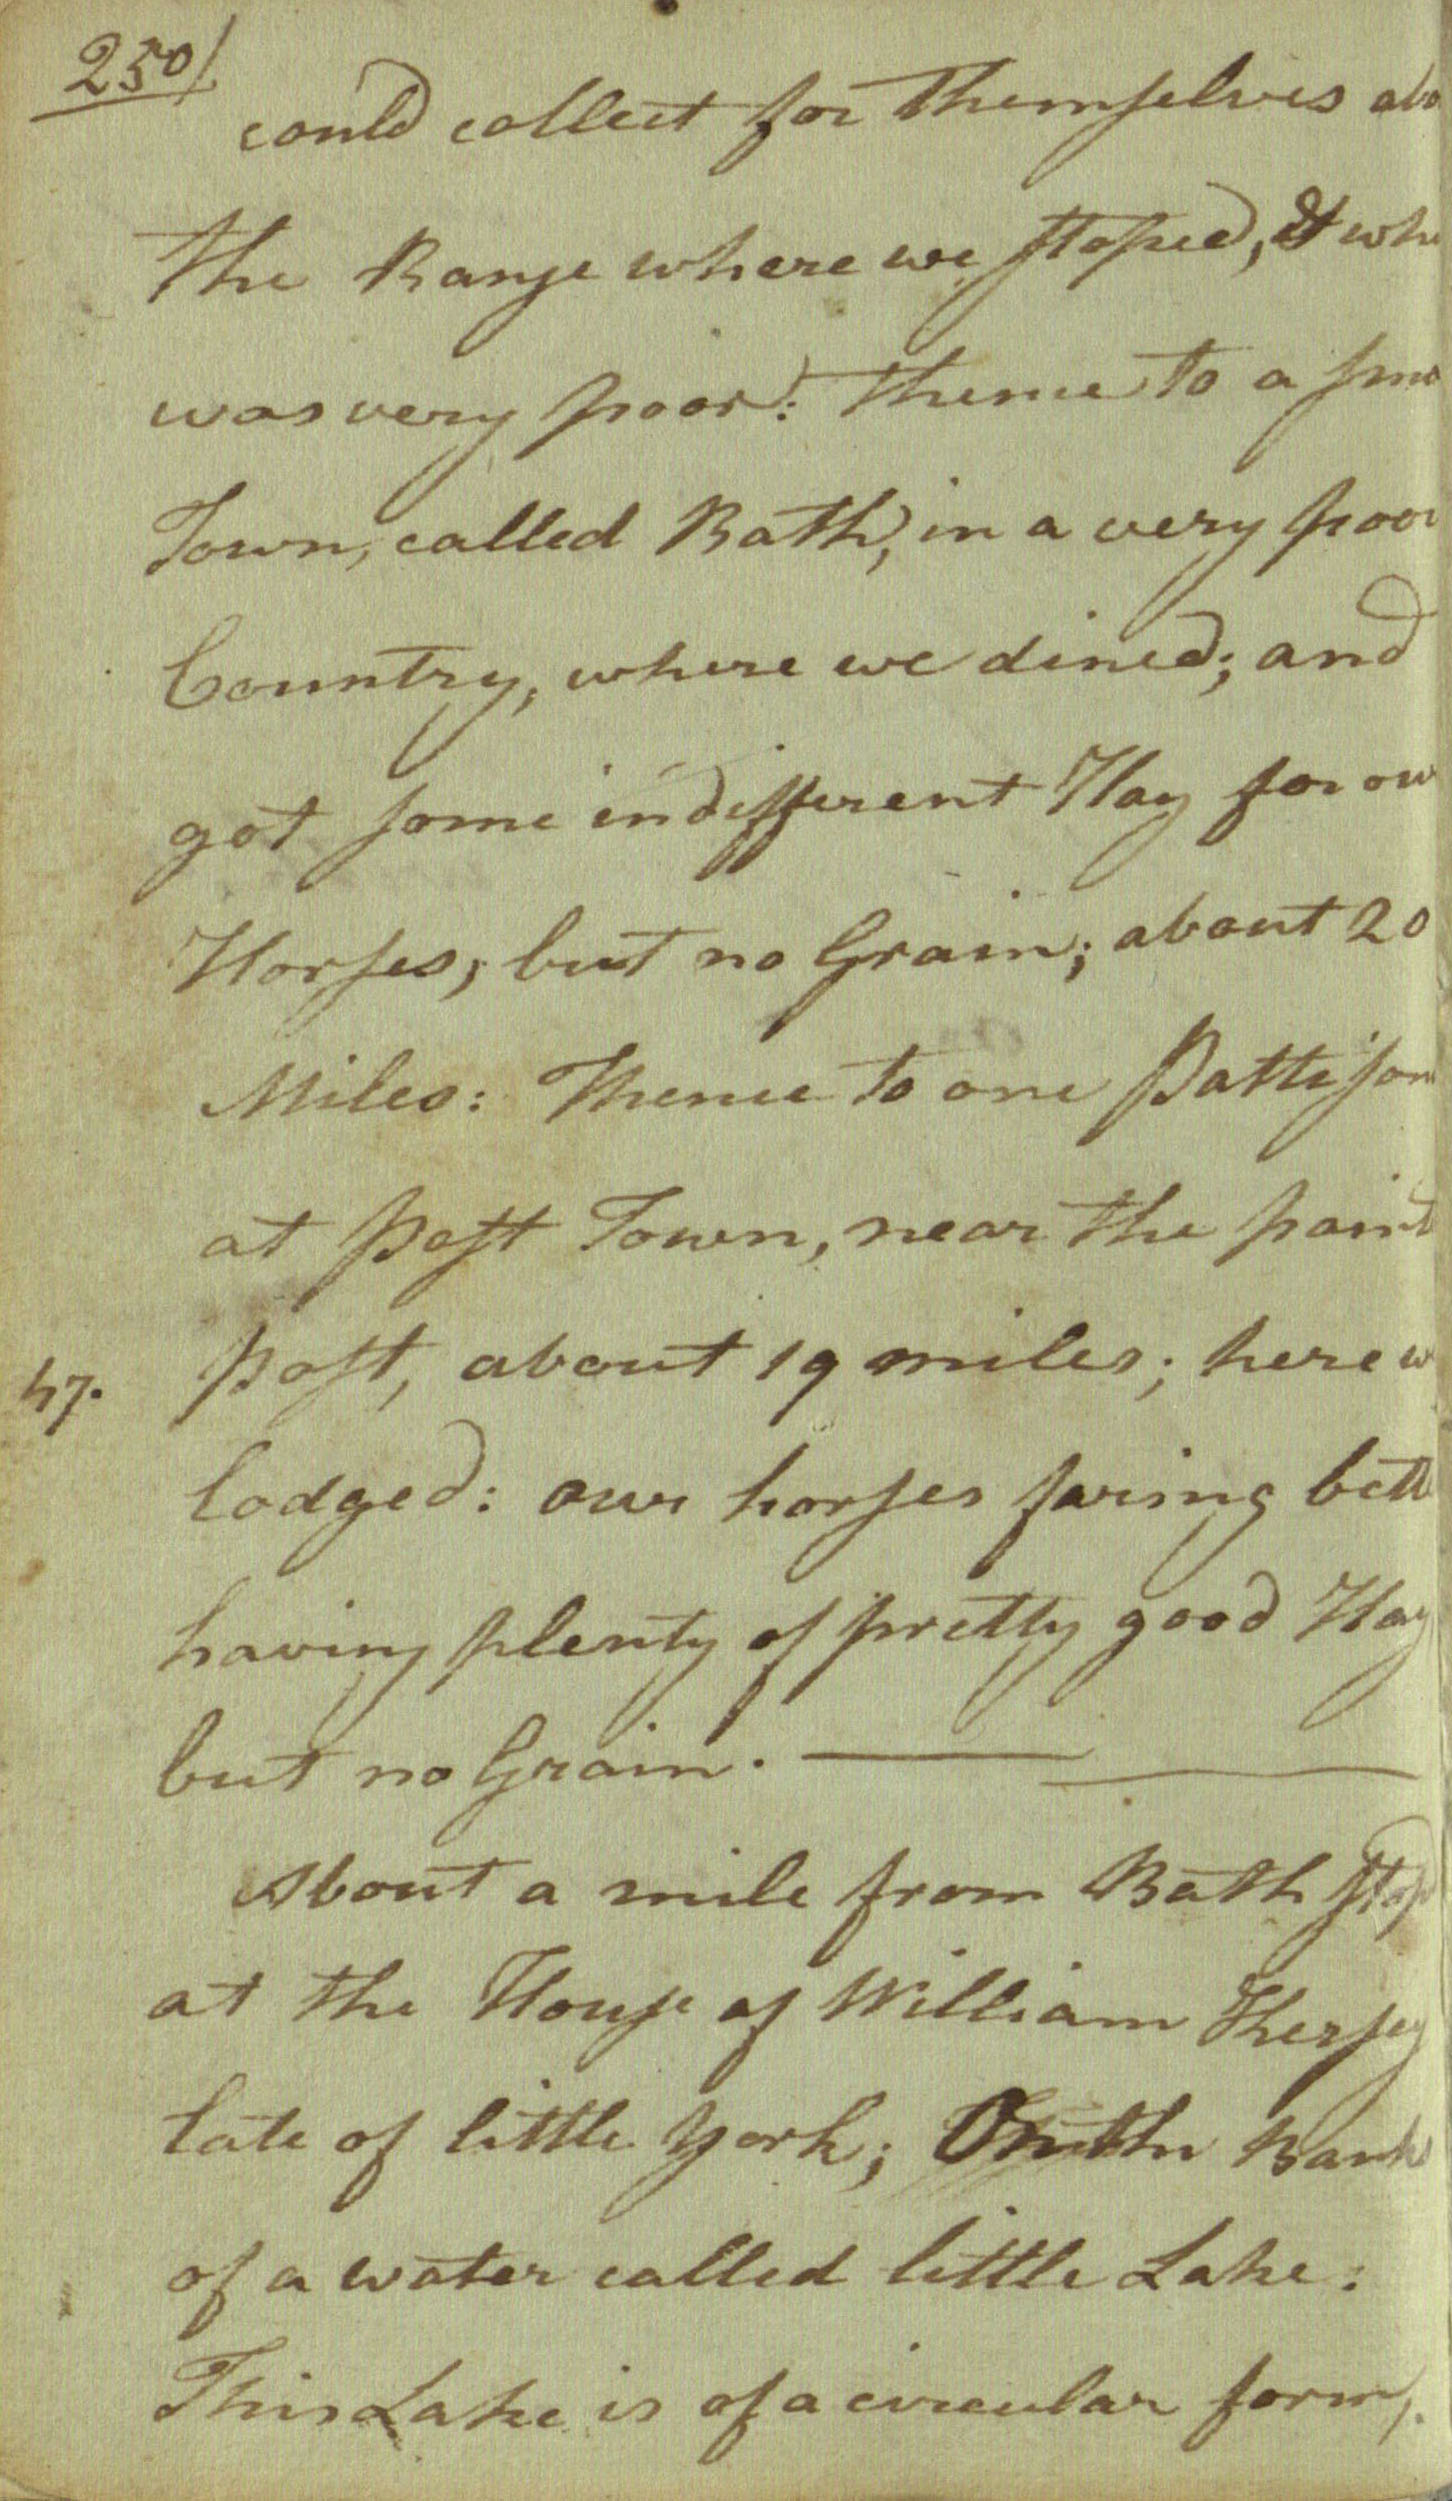 250/
could collect for themselves abo
the Range where we stoped, & whi
was very poor: thence to a sma
Town, called Bath, in a very poor
Country, where we dined; and
got some indifferent Hay for our
Horses; but no Grain; about 20
Miles: Thence to one Pattison
at Post Town, near the paint
47. post, about 19 miles; here w
lodged: our horses faring bett
having plenty of pretty good Hay
but no Grain.
About a mile from Bath stop
at the House of William Hersey
late of little York; On the Banks
of a water called little Lake:
This Lake is of a circular form,